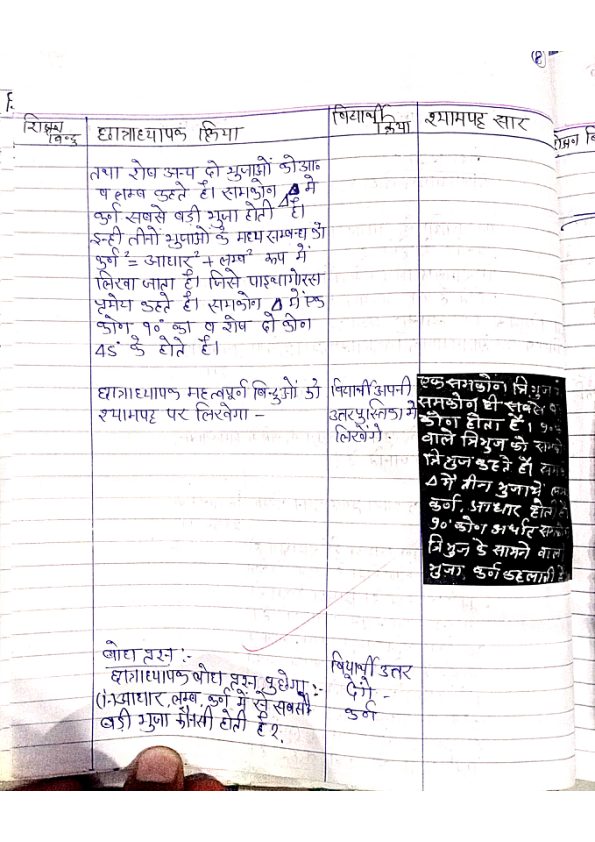 (8)
शिक्षण बिन्दु
छात्राध्यापक क्रिया
विद्यार्थी क्रिया
श्यामपट्ट सार
तथा शेष अन्य दो भुजाओं को आ॰
व लम्ब कहते है। समकोण Δ मे
कर्ण सबसे बड़ी भुजा होती है।
इन्ही तीनों भुजाओं के मध्य सम्बन्ध को
कर्ण² = आधार² + लम्ब² रूप में
लिखा जाता है। जिसे पाइथागोरस
प्रमेय कहते है। समकोण Δ में एक
कोण ९०° का व शेष दो कोण
45° के होते है।
छात्राध्यापक महत्वपूर्ण बिन्दुओं को
श्यामपट्ट पर लिखेगा -
विद्यार्थी अपनी
उत्तरपुस्तिका मे
लिखेंगे.
एक समकोण त्रिभुज
समकोण ही सबसे
कोण होता है। ९०°
वाले त्रिभुज को
त्रिभुज कहते है।
Δ में तीन भुजायें
कर्ण, आधार होती
९०° कोण अर्थात
त्रिभुज के सामने वाली
भुजा कर्ण कहलाती है
बोध प्रश्न :-
छात्राध्यापक बोध प्रश्न पुछेगा :-
(i) आधार, लम्ब, कर्ण में से सबसे
बड़ी भुजा कौनसी होती है?
विद्यार्थी उत्तर
देंगे -
कर्ण